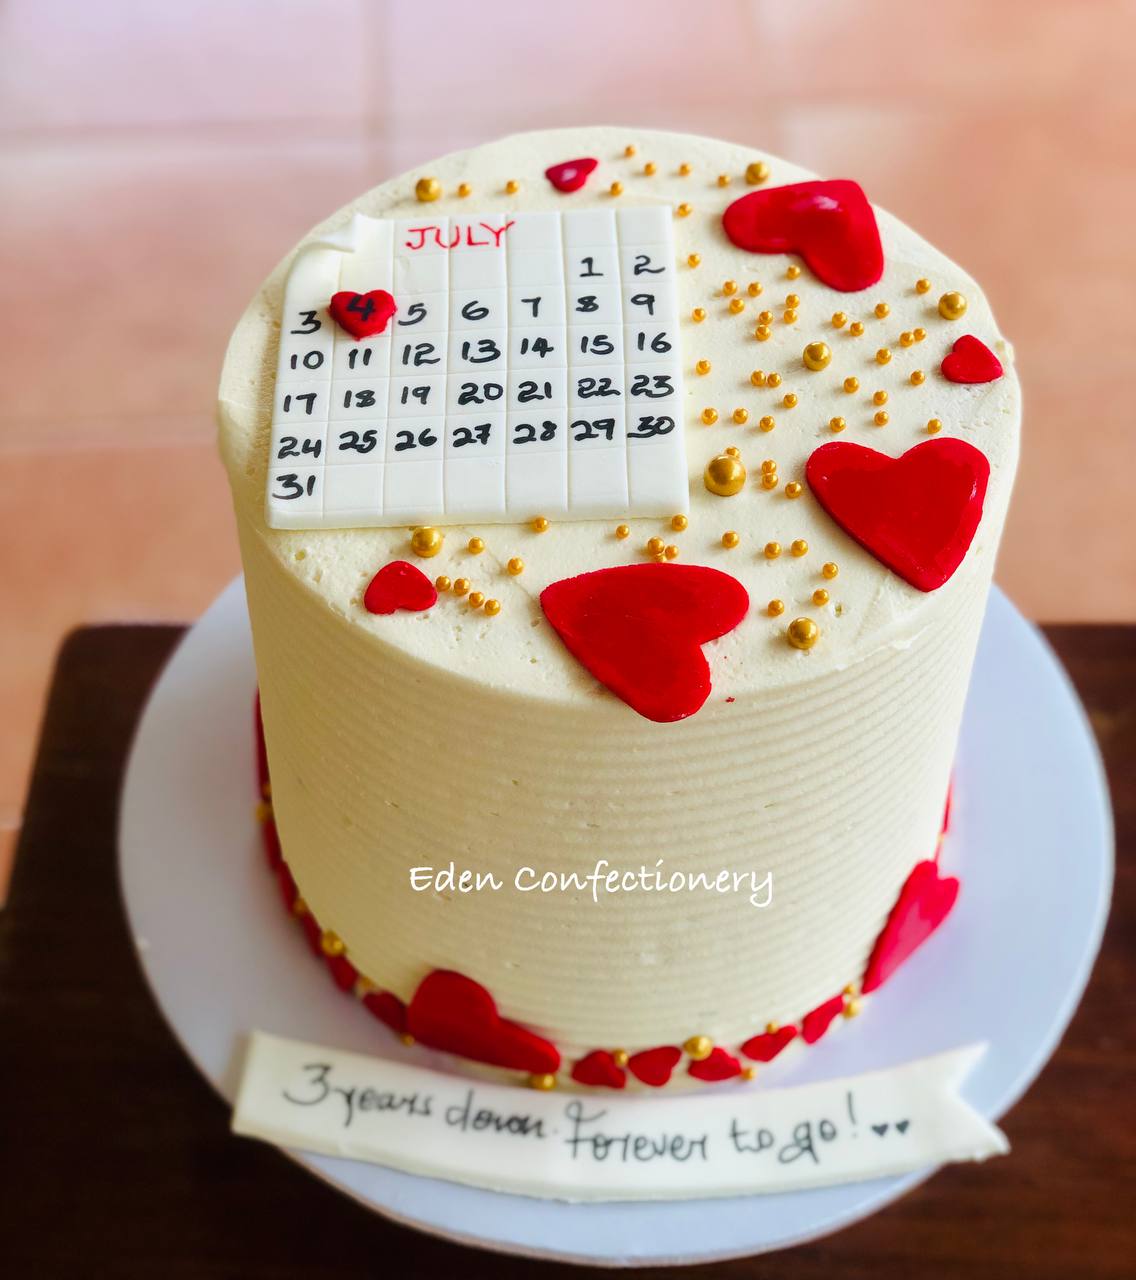 JULY
1 2
3 4 5 6 7 8 9
10 11 12 13 14 15 16
17 18 19 20 21 22 23
24 25 26 27 28 29 30
31
Eden Confectionery
3 years down. Forever to go!